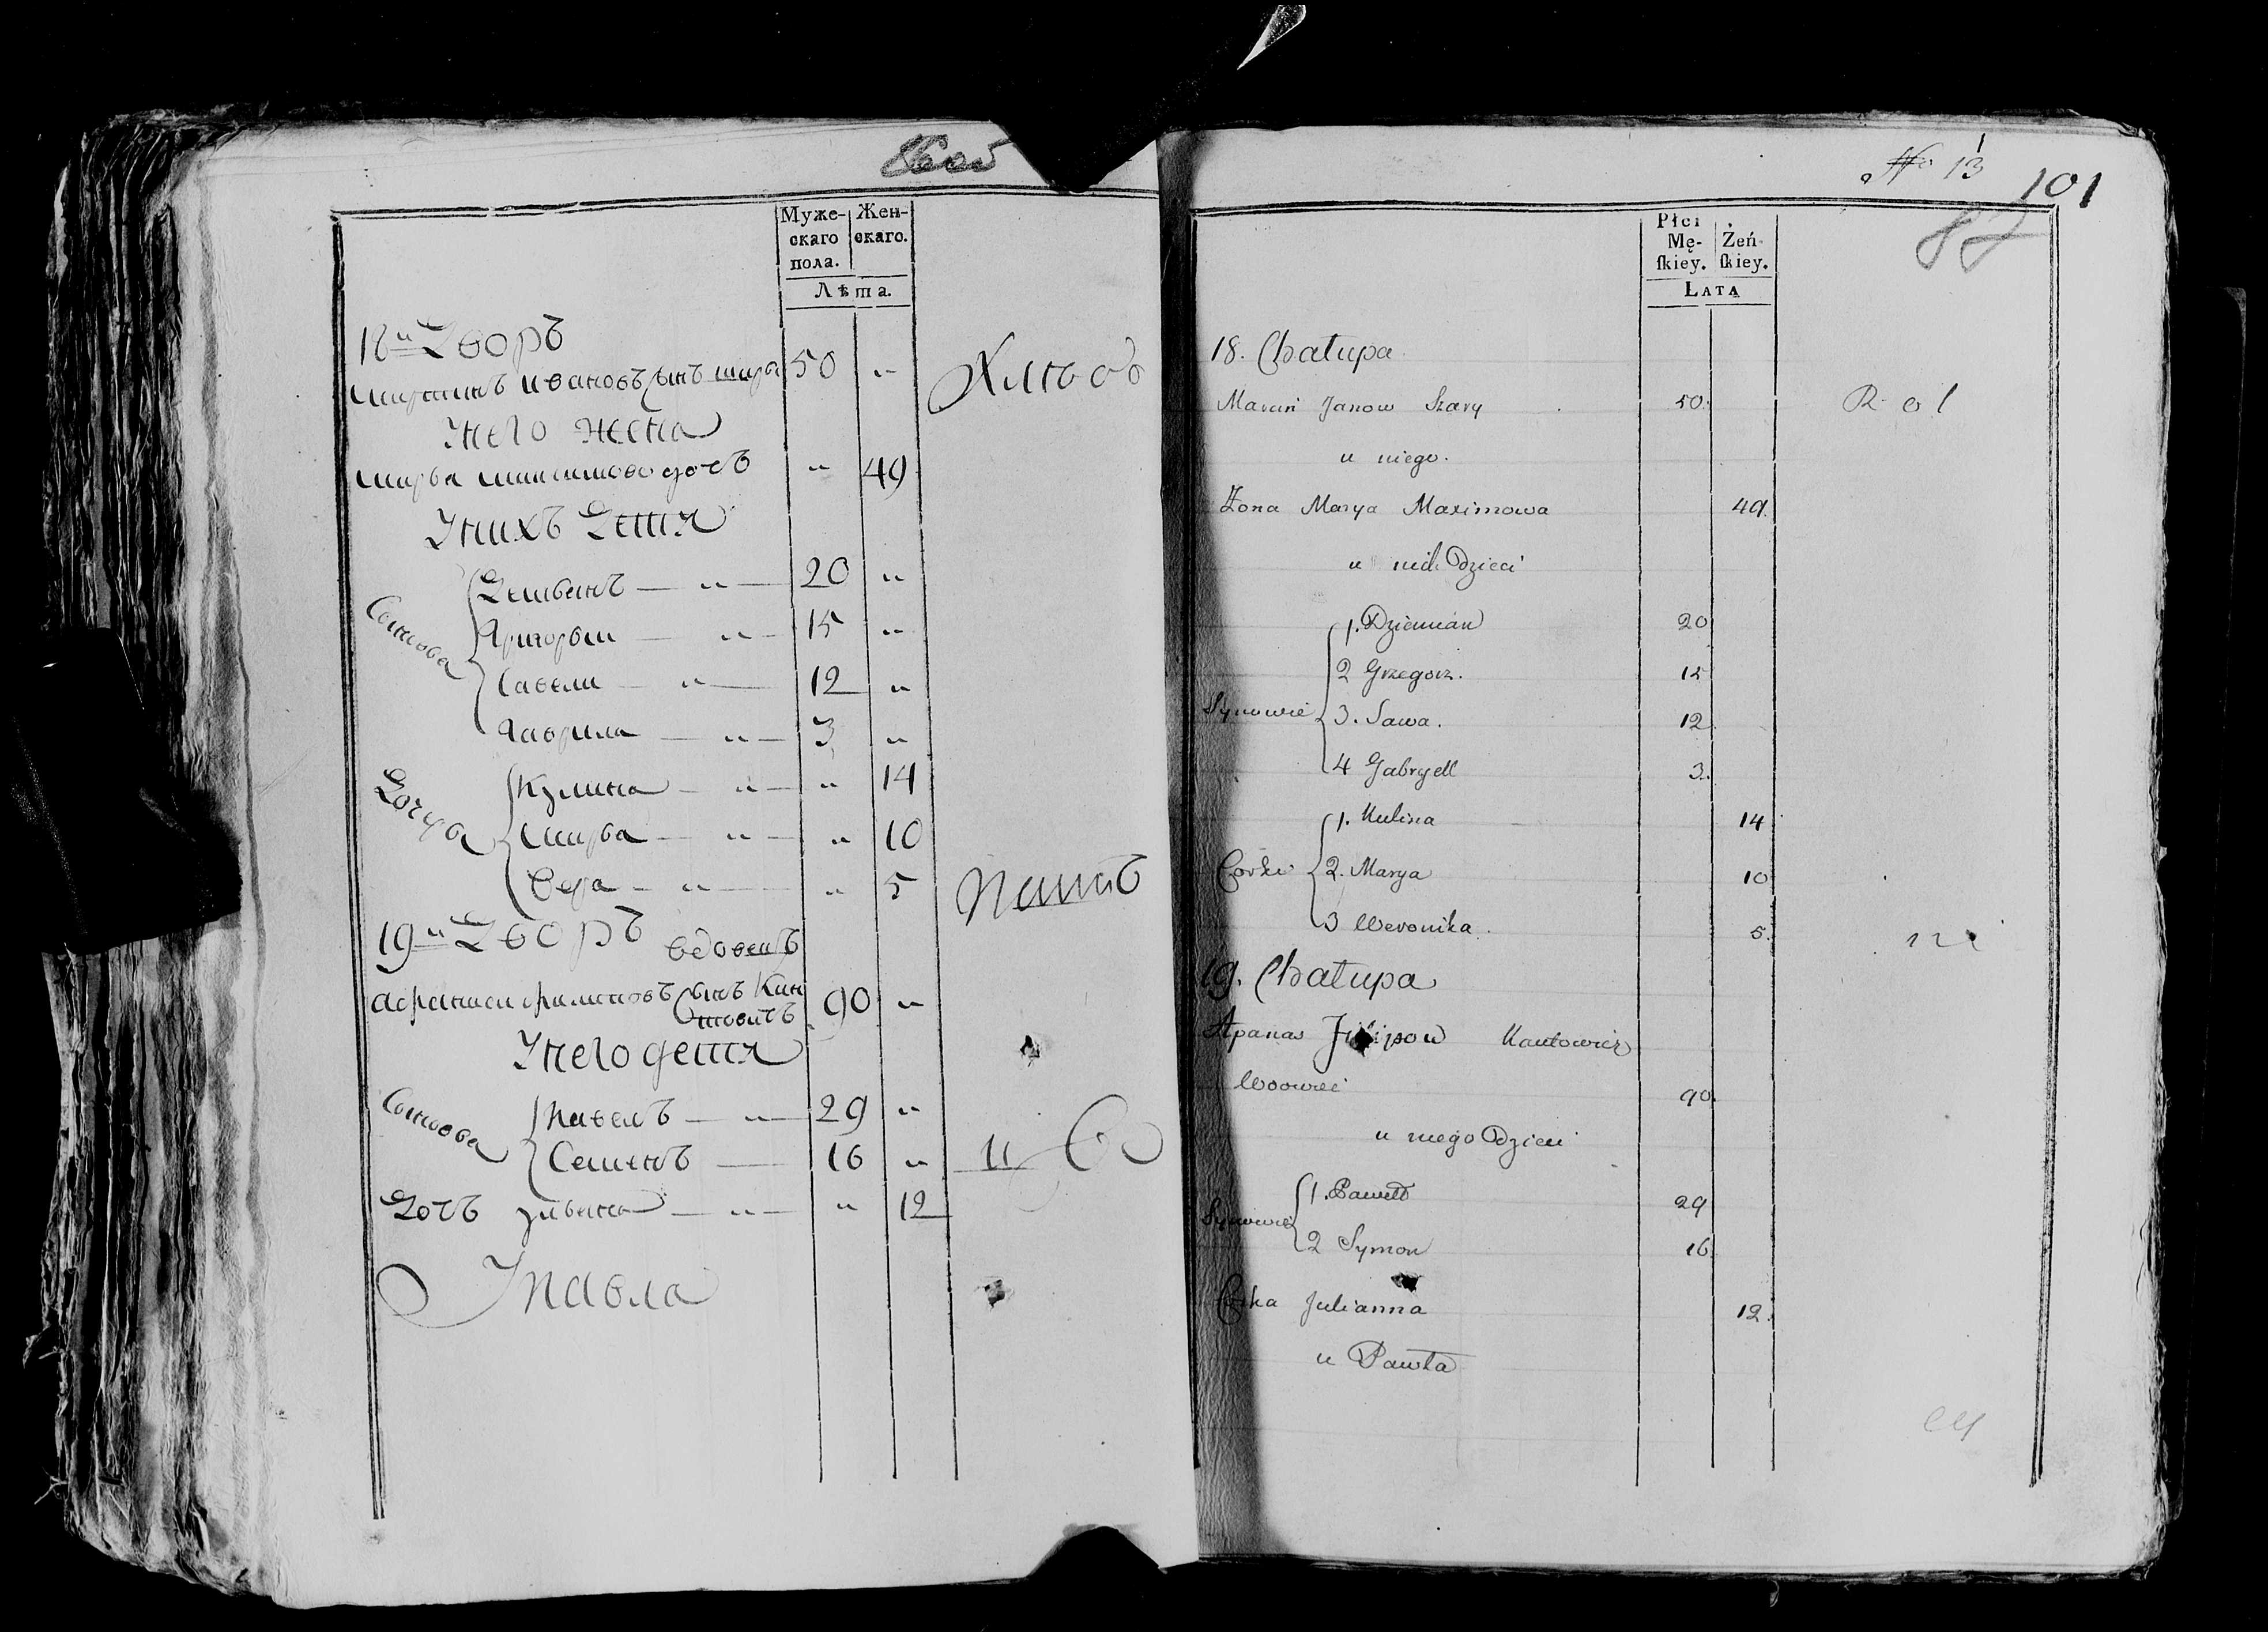 Муже-
скаго
пола.
Жен-
скаго.
Лѣта.
18й Дворъ
мартинъ ивановъ сынъ шары 50 "
Унего жена
марья максимова дочь " 49
Унихъ Детя
Сынова
Демьянъ — " — 20 "
Григорьи — " — 15 "
Савели — " — 12 "
Гаврила — " — 3 "
Дочуа
Кулина — " — " 14
марья — " — " 10
Вера — " — " 5
19й Дворъ вдовецъ
афанаси филиповъ сынъ Кан
товичъ 90 "
Унего детя
Сынова
Павелъ — " — 29 "
Семенъ — 16 "
Дочь ульяна — " — " 12
У Павла
№ 13
101
87
Płci
Mę-
ſkiey.
Żeń-
ſkiey.
Łata
18. Chałupa
Marcin Janow Szary 50. R o l
u niego.
Żona Marya Maximowa 49.
u nich Dzieci
Synowie
1. Dziemian 20
2 Grzegorz. 15
3. Sawa. 12
4 Gabryell 3.
Corki
1. Kulina 14
2. Marya 10
3 Weronika. 5.
19. Chałupa
Apanas Filipow Kantowicz
Wdowiec 90.
u niego Dzieci
Synowie
1. Paweł 29
2 Symon 16
Corka Julianna 12.
u Pawła